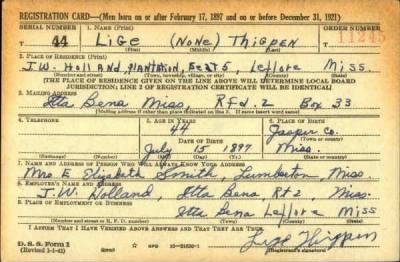 REGISTRATION CARD—(Men born on or after February 17, 1897 and on or before December 31, 1921)
SERIAL NUMBER 1. NAME (Print) ORDER NUMBER
44 Lige (None) Thigpen 11245
(First) (Middle) (Last)
2. PLACE OF RESIDENCE (Print)
J.W. Holland Plantation, Leflore Miss
(Number and street) (Town, township, village, or city) (County) (State)
[THE PLACE OF RESIDENCE GIVEN ON THE LINE ABOVE WILL DETERMINE LOCAL BOARD
JURISDICTION; LINE 2 OF REGISTRATION CERTIFICATE WILL BE IDENTICAL]
3. MAILING ADDRESS
Itta Bena Miss, Rfd. 2 Box 33
[Mailing address if other than place indicated on line 2. If same insert word same]
4. TELEPHONE 5. AGE IN YEARS 6. PLACE OF BIRTH
44 Jasper Co.
DATE OF BIRTH (Town or county)
July 15 1897 Miss.
(Exchange) (Number) (Mo.) (Day) (Yr.) (State or country)
7. NAME AND ADDRESS OF PERSON WHO WILL ALWAYS KNOW YOUR ADDRESS
Mrs E Elizabeth Smith, Lumberton, Miss.
8. EMPLOYER'S NAME AND ADDRESS
J.W. Holland, Itta Bena, Rt 2, Miss.
9. PLACE OF EMPLOYMENT OR BUSINESS
Itta Bena Leflore Miss
(Number and street or R. F. D. number) (Town) (County) (State)
I AFFIRM THAT I HAVE VERIFIED ABOVE ANSWERS AND THAT THEY ARE TRUE.
D. S. S. Form 1 Lige Thigpen
(Revised 1-1-42) GPO 16—21630-1